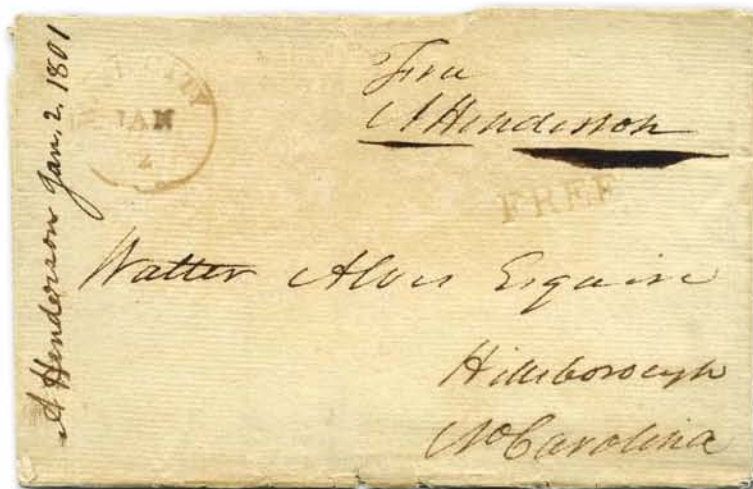 A Henderson Jan. 2. 1801
CITY
JAN
2
Free
A Henderson
FREE
Walter Alves Esquire
Hillsborough
No Carolina